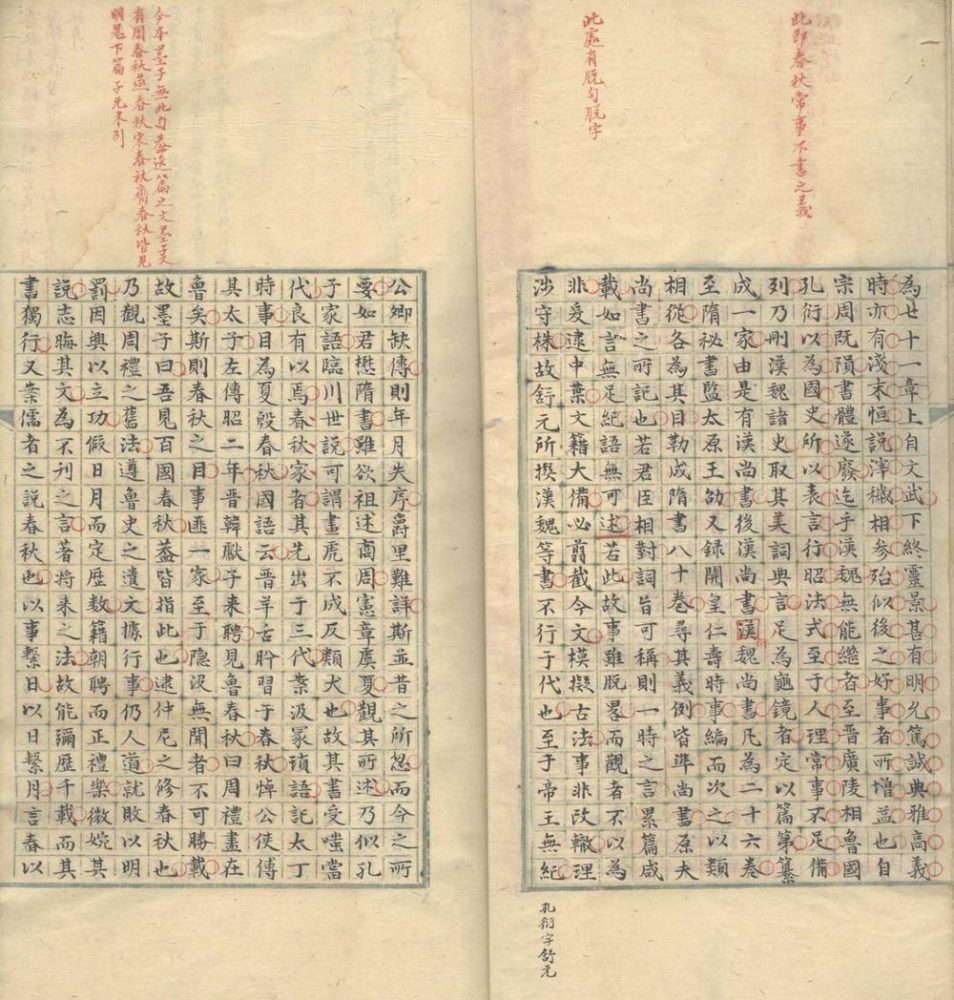 此即春秋常事不書之義
此處有脱句脱字
為廿十一章上自文武下終靈景甚有明允篤誠典雅高義
時亦有淺末恒說滓穢相參殆似後之好事者所增益也自
宗周既隕書體遂廢迄乎漢魏無能繼者至晉廣陵相魯國
孔衍以為國史所以表言行昭法式至于人理常事不足備
列乃刪漢魏諸史取其美詞典言足為龜鏡者定以篇第纂
成一家由是有漢尚書後漢尚書漢魏尚書凡為二十六卷
至隋祕書監太原王劭又録開皇仁壽時事編而次之以類
相從各為其目勒成隋書八十卷尋其義例皆準尚書原夫
尚書之所記也若君臣相對詞旨可稱則一時之言累篇咸
載如言無足紀語無可述若此故事雖脫畧而觀者不以為
非爰逮中葉文籍大備必剪截今文模擬古法事非改轍理
涉守株故舒元所撰漢魏等書不行于代也至于帝王無紀
孔衍字舒元
今本墨子無此句葢逸篇之文墨子又
有周春秋燕春秋宋春秋齊春秋皆見
明鬼下篇子元未引
公卿缺傳則年月失序爵里難詳斯並昔之所忽而今之所
要如君懋隋書雖欲祖述商周憲章虞夏觀其所述乃似孔
子家語臨川世說可謂畫虎不成反類犬也故其書受嗤當
代良有以焉春秋家者其先出于三代案汲冢瑣語記太丁
時事目為夏殷春秋國語云晉羊舌肸習于春秋悼公使傅
其太子左傳昭二年晉韓獻子来聘見魯春秋曰周禮盡在
魯矣斯則春秋之目事匪一家至于隱沒無聞者不可勝載
故墨子曰吾見百國春秋葢皆指此也逮仲尼之修春秋也
乃觀周禮之舊法遵魯史之遺文據行事仍人道就敗以明
罰因興以立功假日月而定歷數籍朝聘而正禮樂微婉其
說志晦其文為不刊之言著將来之法故能彌歷千載而其
書獨行又案儒者之說春秋也以事繫日以日繫月言春以